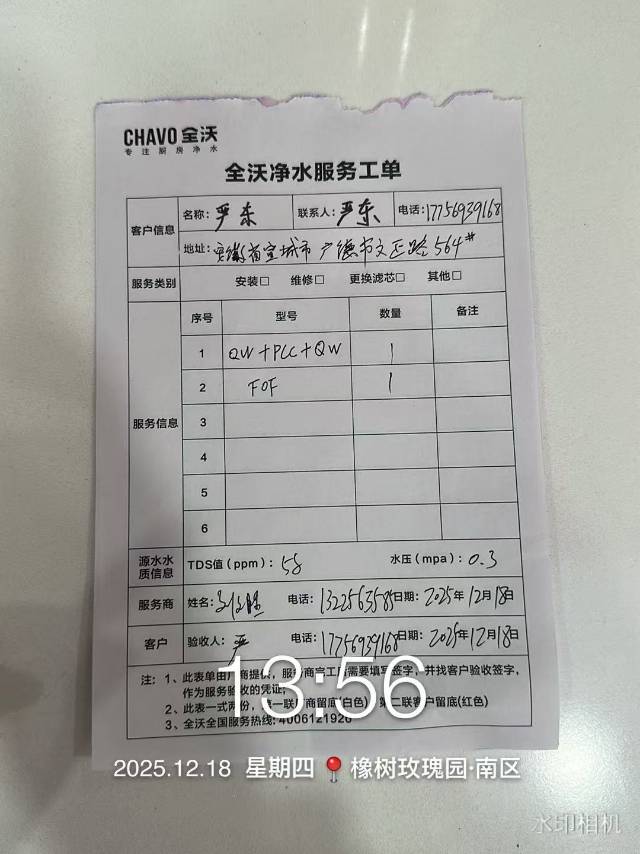 CHAVO 全沃
专注厨房净水
全沃净水服务工单
客户信息 名称：严东 联系人：严东 电话：17756939168
地址：安徽省宣城市广德市文正路564#
服务类别 安装□ 维修□ 更换滤芯□ 其他□
服务信息 序号 型号 数量 备注
1 QW+PCC+QW 1
2 FOF 1
3
4
5
6
源水水质信息 TDS值（ppm）：58 水压（mpa）：0.3
服务商 姓名： 电话：1322563585 日期：2025年12月18日
客户 验收人：严 电话：17756939168 日期：2025年12月18日
注：1、此表单由厂商提供，服务商完工后需要填写签字，并找客户验收签字，
作为服务验收的凭证；
2、此表一式两份，第一联厂商留底(白色)，第二联客户留底(红色)
3、全沃全国服务热线：4006121926
13:56
2025.12.18 星期四 橡树玫瑰园·南区
水印相机